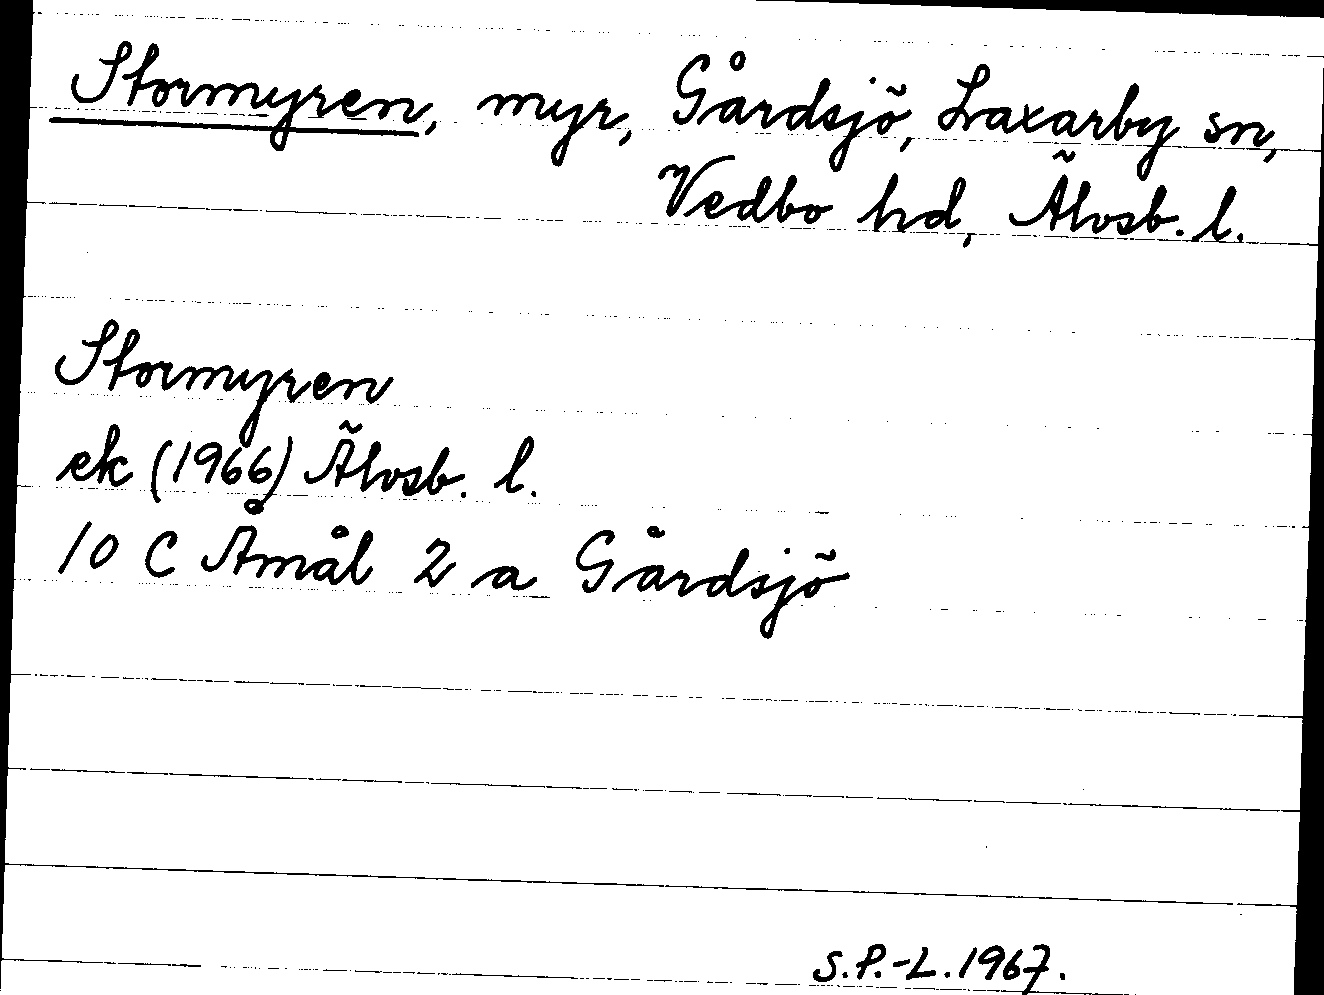 Stormyren, myr, Gårdsjö, Laxarby sn,
Vedbo hd, Älvsb. l.
Stormyren
ek (1966) Älvsb. l.
10 C Åmål 2 a Gårdsjö
S.P.-L.1967.